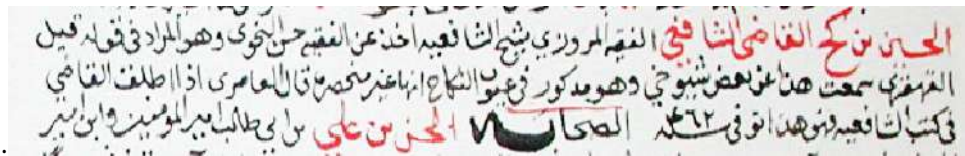 الحسين بن كج القاضي الشافعي الفقيه المروزي شيخ الشافعيه اخذ عن الفقيه حسن النحوي وهو المراد في قوله قيل
سمعت هذا عن بعض شيوخي وهو مدكور في عيوب النكاح انها غير منحصرة قال العامري اذا اطلقت القاضي
في كتب الشافعيه فهو هذا توفي سنه ٤٦٢ الصحابه الحسن بن علي بن ابي طالب امير المومنين وابن امير